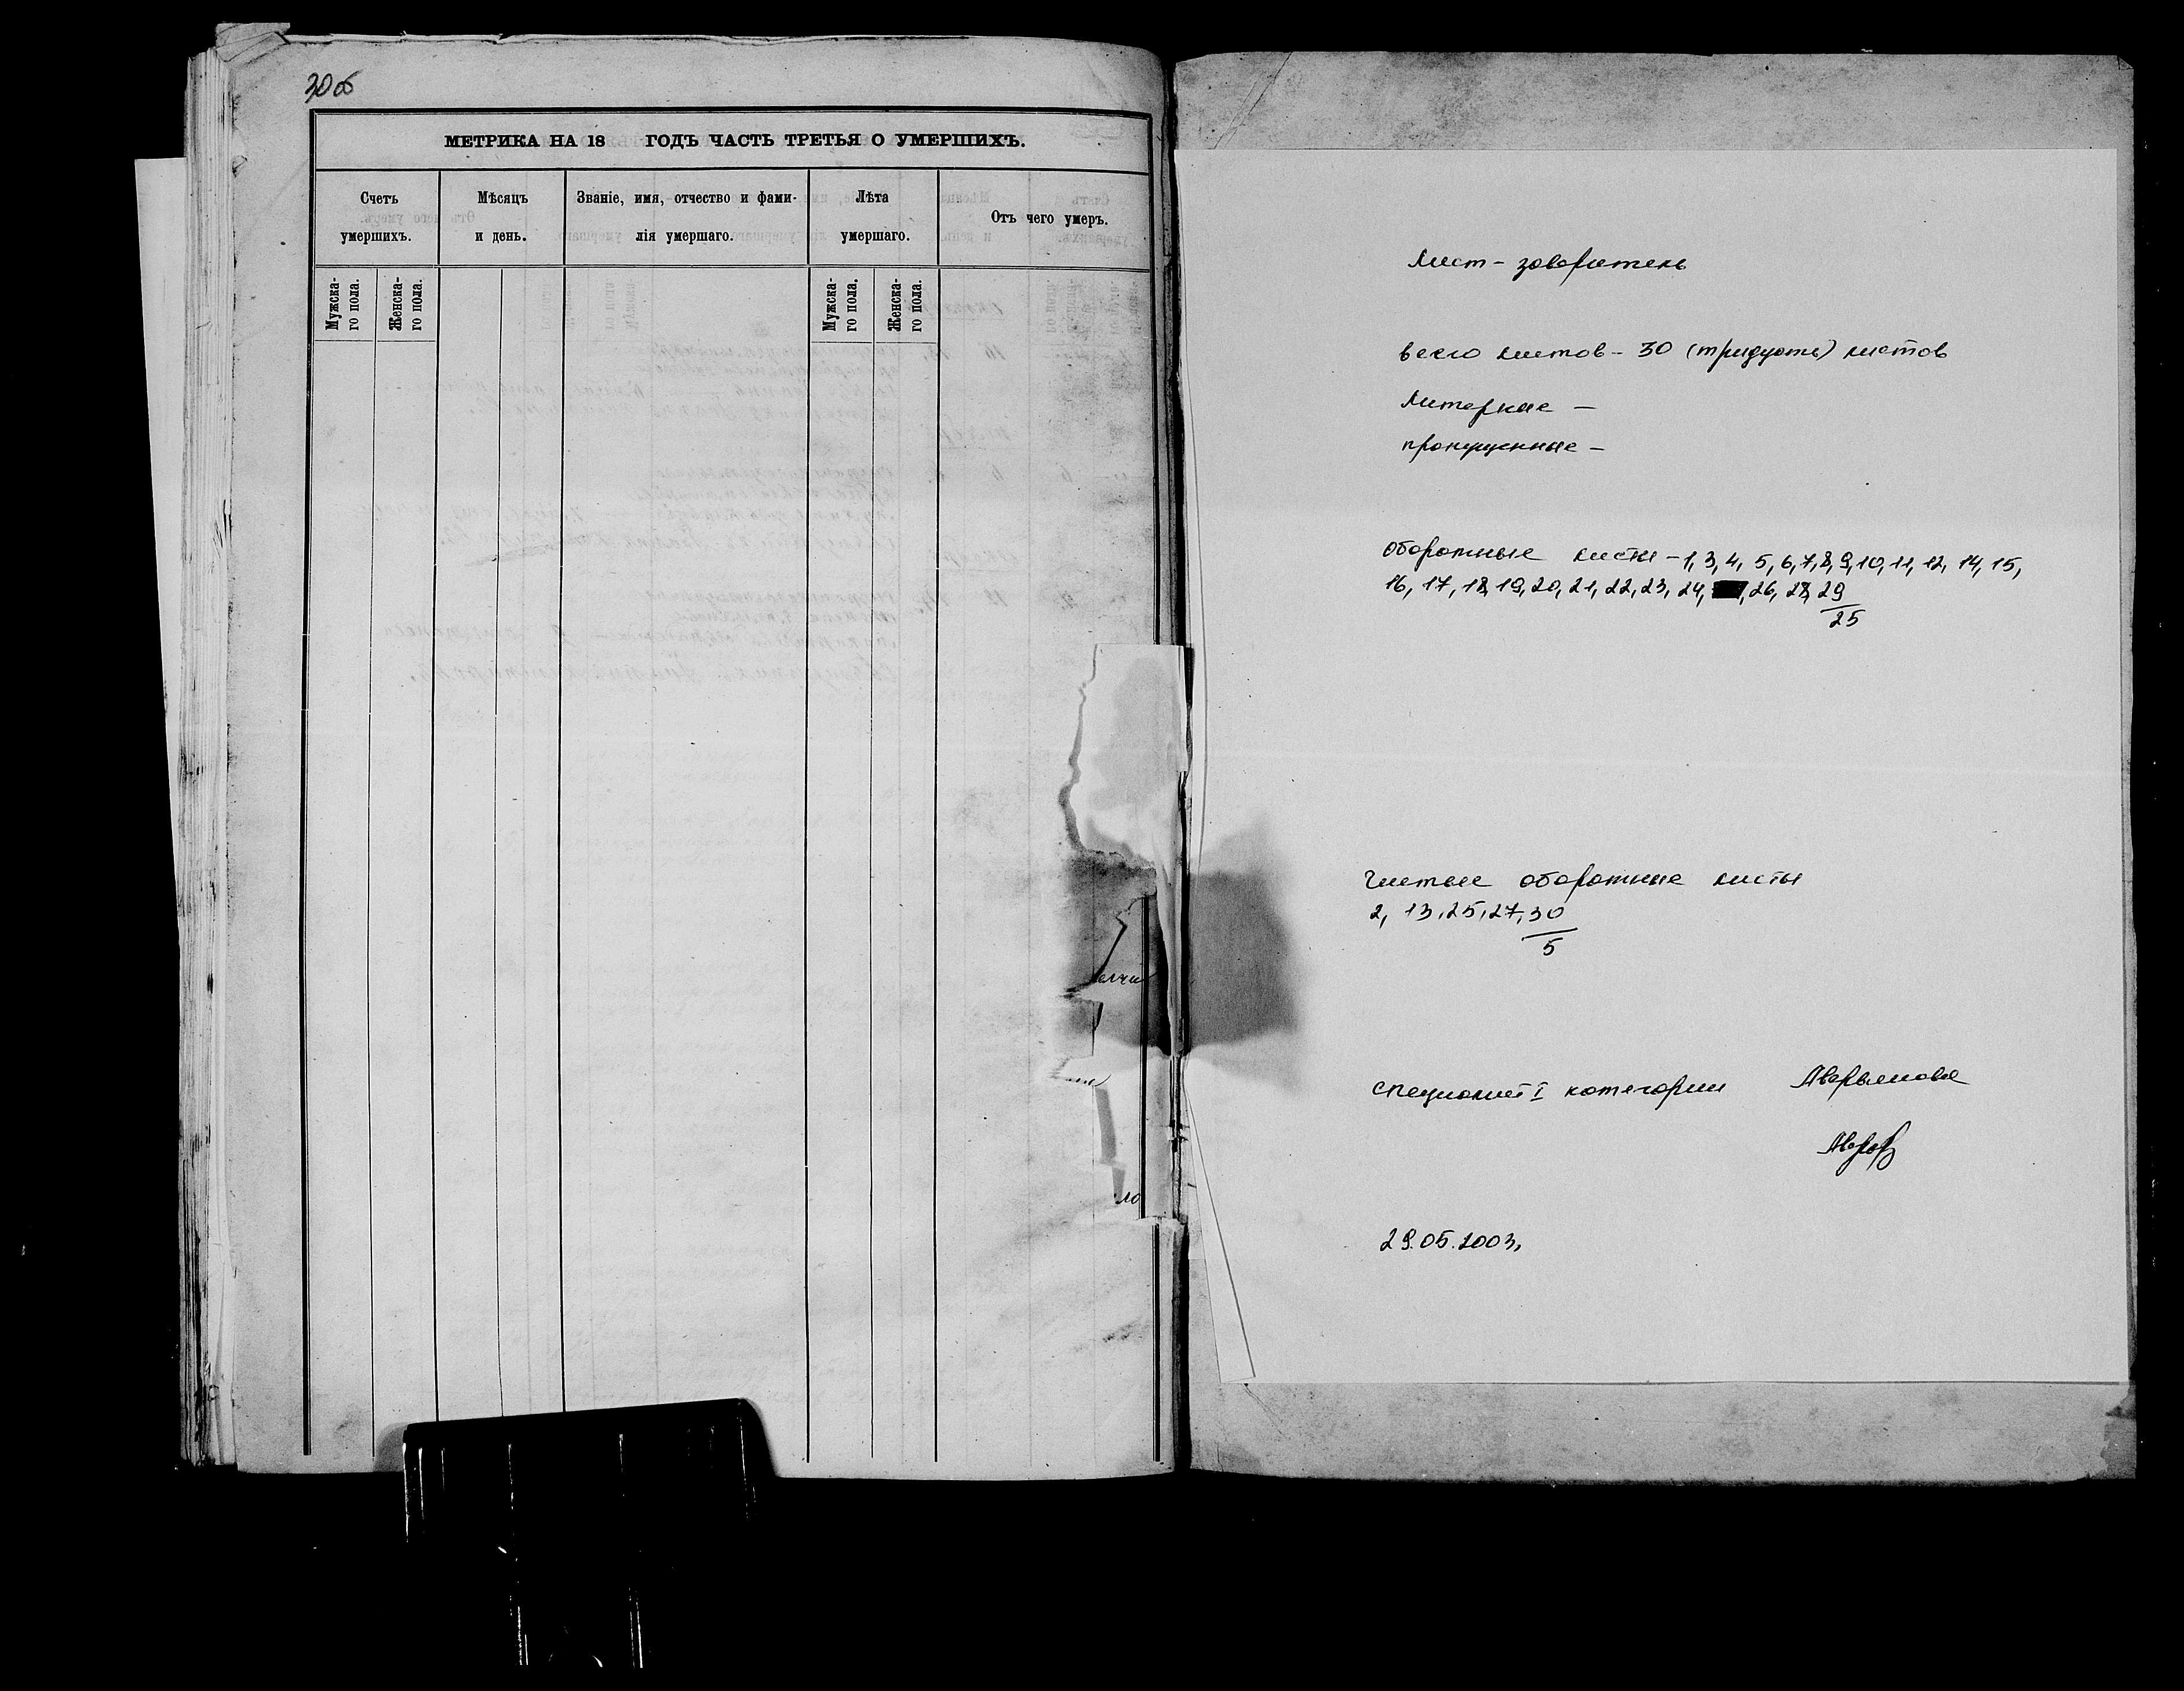 30об
МЕТРИКА НА 18 ГОДЪ ЧАСТЬ ТРЕТЬЯ О УМЕРШИХЪ.
Счетъ умершихъ.
Мѣсяцъ и день.
Званіе, имя, отчество и фами-
лія умершаго.
Лѣта умершаго.
Отъ чего умеръ.
Мужска-
го пола.
Женска-
го пола.
Мужска-
го пола.
Женска-
го пола.
ло
Лист-заверитель
всего листов - 30 (тридцать) листов
литерные —
пропущенные —
оборотные листы - 1, 3, 4, 5, 6, 7, 8, 9, 10, 11, 12, 14, 15,
16, 17, 18, 19, 20, 21, 22, 23, 24, , 26, 28, 29
25
Чистые оборотные листы
2, 13, 25, 27, 30
5
специалист I категории Аверьянова
29.05.2003.